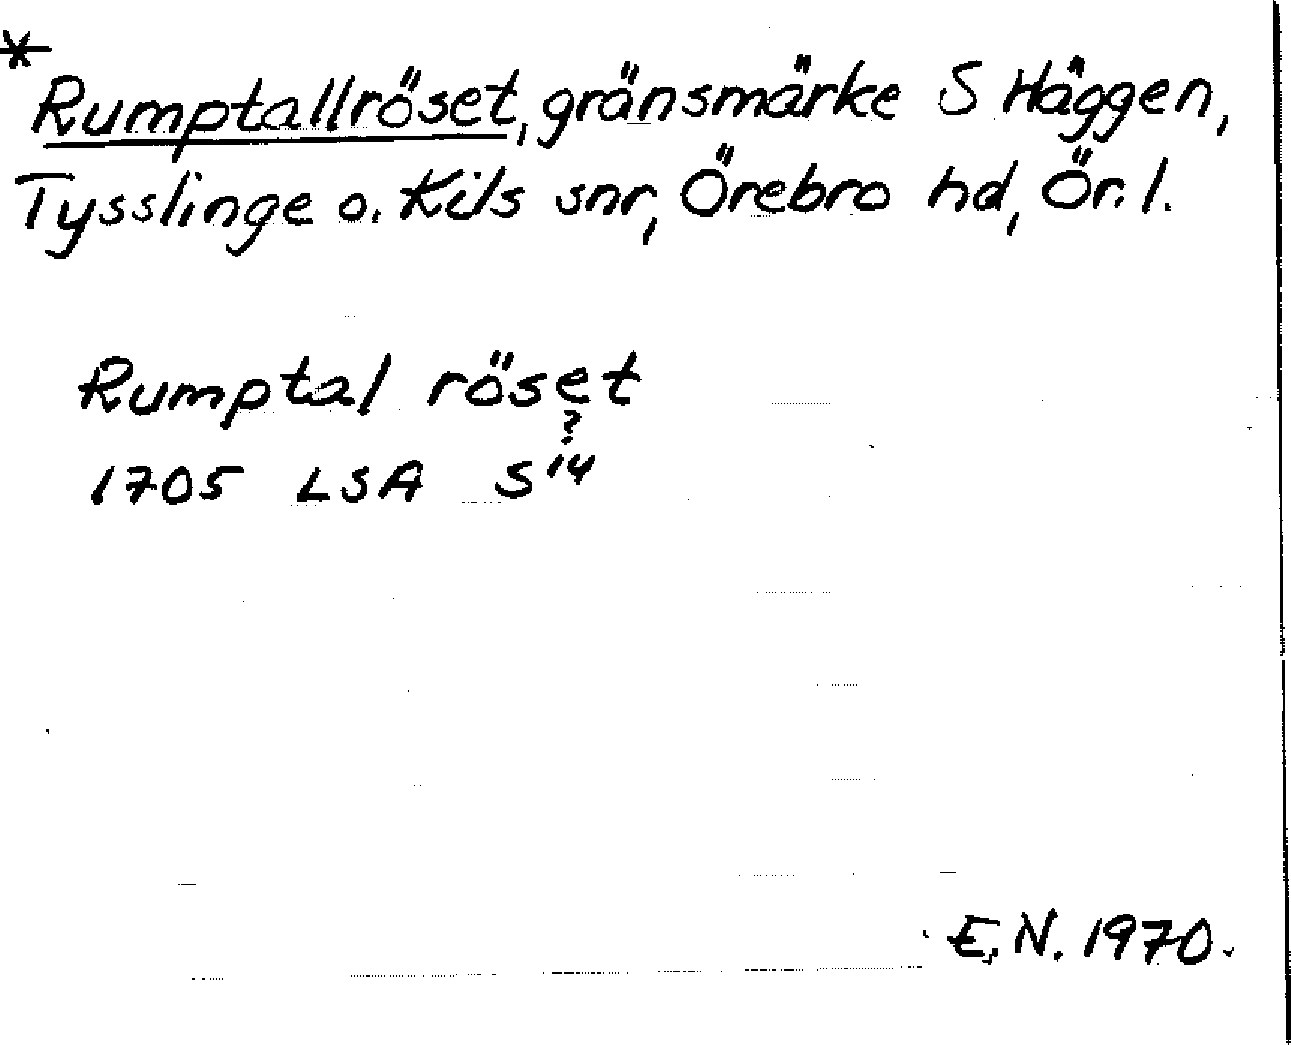 * Rumptallröset, gränsmärke S Häggen,
Tysslinge o. Kils snr, Örebro hd, Ör. l.
Rumptal röset
?
1705 LSA S 14
E. N. 1970.